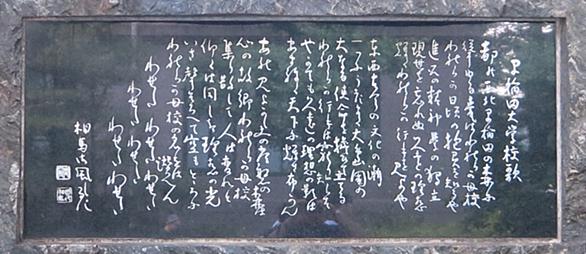 早稲田大学校歌
都の西北早稲田の森に
聳ゆる甍はわれらが母校
われらが日頃の抱負を知るや
進取の精神学の独立
現世を忘れぬ久遠の理想
輝くわれらが行手を見よや
東西古今の文化の潮
一つにうづまく大島国の
大なる使命を担ひて立てる
われらが行手は窮り知らず
やがても久遠の理想の影は
あまねく天下に輝き布かん
あれ見よかしこの常磐の森は
心の故郷われらが母校
集り散じて人は変れど
仰ぐは同じき理想の光
いざ声そろへて空もとどろに
われらが母校の名をば讃へん
わせだ わせだ
わせだ わせだ わせだ
わせだ わせだ
相馬御風